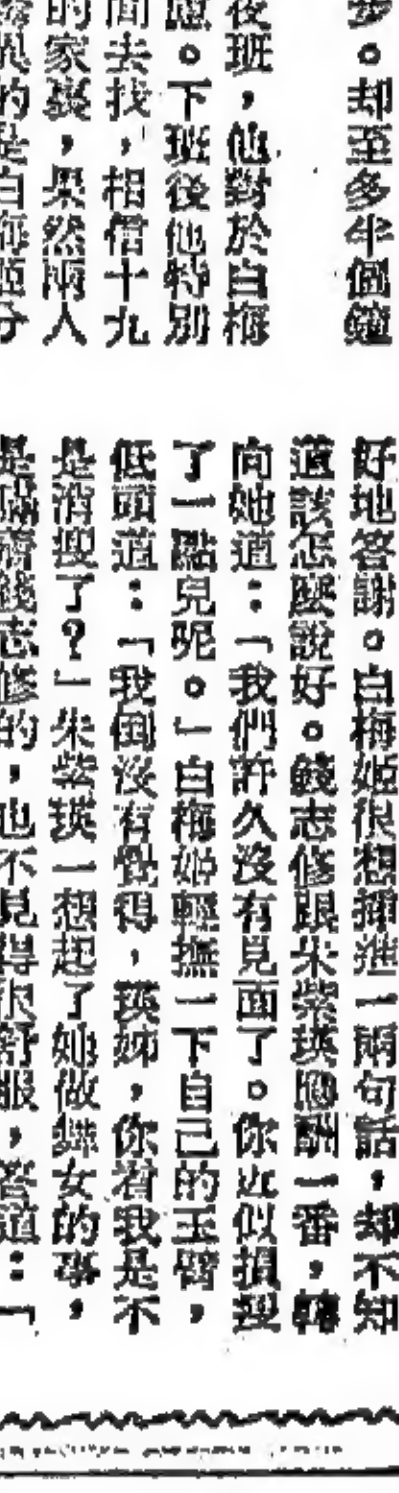 步。却至多半個鐘
夜班,他對於白梅
慮。下班後他特別
間去找,相信十九
的家裏,果然兩人
的是白梅姬分
好地答謝。白梅姬很想揷進一兩句話,却不知
道該怎麽說好。錢志修跟朱紫瑛應酬一番,轉
向她道:「我們許久沒有見面了。你近似損瘦
了一點兒呢。」白梅姬輕撫一下自己的玉臂,
低頭道:「我倒沒有覺得,瑛姊,你看我是不
是消瘦了?」朱紫瑛一想起了她做舞女的事,
是隔膜錢志修的,也不見得很舒服,答道:「